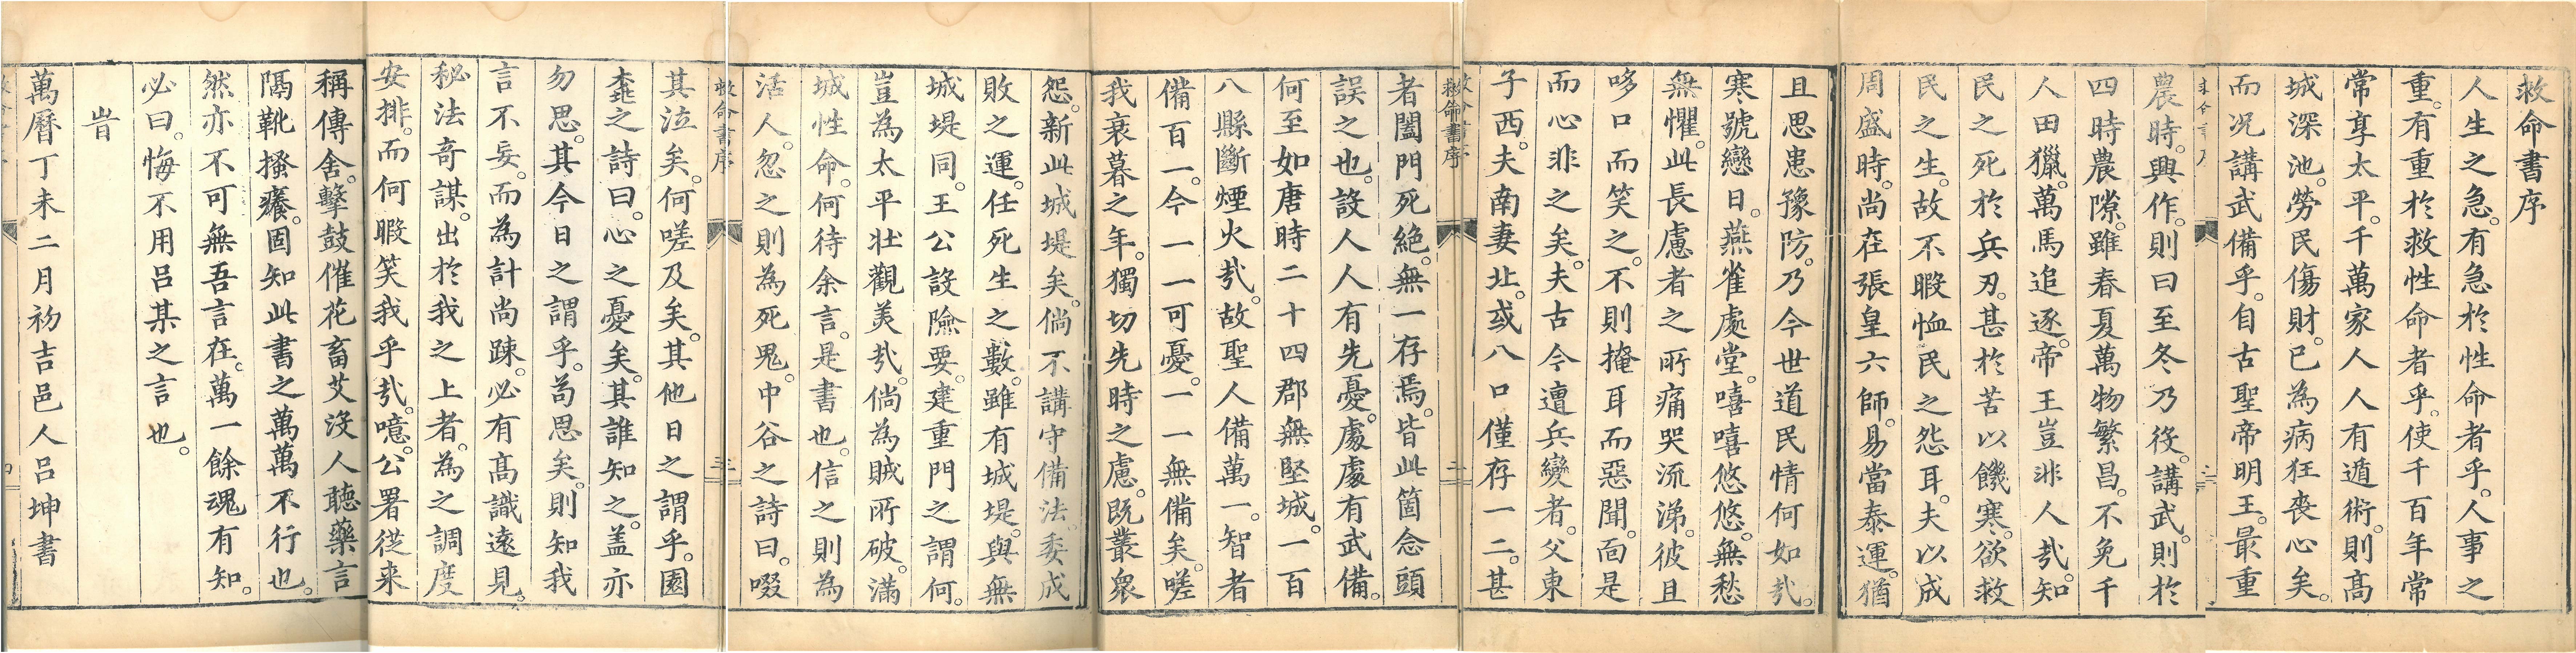 救命書序
人生之急。有急於性命者乎。人事之
重。有重於救性命者乎。使千百年常
常享太平。千萬家人人有遁術。則高
城深池。勞民傷財。已為病狂喪心矣。
而況講武備乎。自古聖帝明王。最重
農時。興作。則曰至冬乃役。講武。則於
四時農隙。雖春夏萬物繁昌。不免千
人田獵。萬馬追逐。帝王豈非人哉。知
民之死於兵刃。甚於苦以饑寒。欲救
民之生。故不暇恤民之怨耳。夫以成
周盛時。尚在張皇六師。易當泰運。猶
且思患豫防。乃今世道民情何如哉。
寒號戀日。燕雀處堂。嘻嘻悠悠。無愁
無懼。此長慮者之所痛哭流涕。彼且
哆口而笑之。不則掩耳而惡聞。面是
而心非之矣。夫古今遭兵變者。父東
子西。夫南妻北。或八口僅存一二。甚
者闔門死絕。無一存焉。皆此箇念頭
誤之也。設人人有先憂。處處有武備。
何至如唐時二十四郡無堅城。一百
八縣斷煙火哉。故聖人備萬一。智者
備百一。今一一可憂。一一無備矣。嗟
我衰暮之年。獨切先時之慮。既叢眾
怨。新此城堤矣。倘不講守備法。委成
敗之運。任死生之數。雖有城堤。與無
城堤同。王公設險要。建重門之謂何。
豈為太平壯觀美哉。倘為賊所破。滿
城性命。何待余言。是書也。信之則為
活人。忽之則為死鬼。中谷之詩曰。啜
其泣矣。何嗟及矣。其他日之謂乎。園
桃之詩曰。心之憂矣。其誰知之。蓋亦
勿思。其今日之謂乎。苟思矣。則知我
言不妄。而為計尚踈。必有高識遠見
秘法奇謀。出於我之上者。為之調度
安排。而何暇笑我乎哉。噫。公署從來
稱傳舍。擊鼓催花畜艾沒人聽藥言
隔靴搔癢。固知此書之萬萬不行也。
然亦不可無吾言在。萬一餘魂有知。
必曰。悔不用呂某之言也。
旹
萬曆丁未二月初吉邑人呂坤書